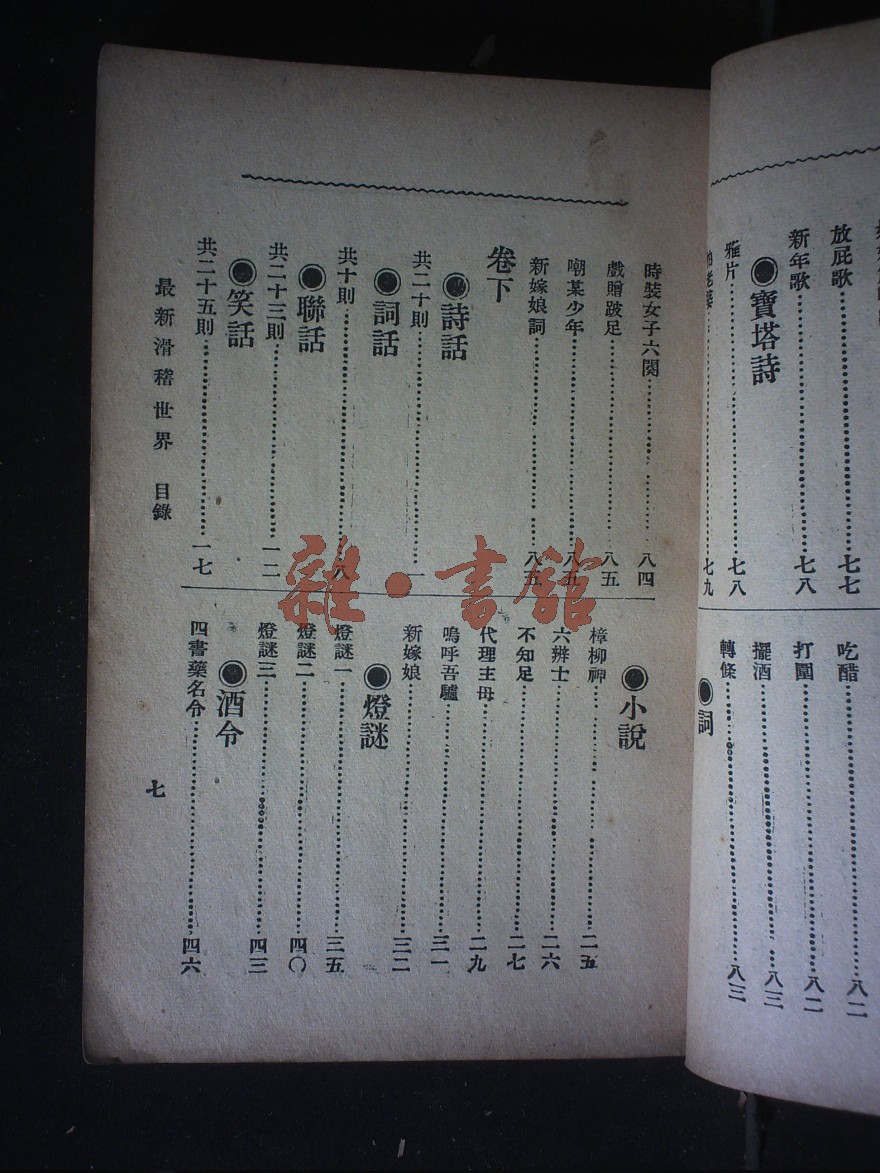 放屁歌……七七
新年歌……七八
●寶塔詩
雅片……七八
七九
吃醋……八二
打圍……八二
擺酒……八三
轉條……八三
●詞
時裝女子六闋……八四
戲贈跛足……八五
嘲某少年……八五
新嫁娘詞……八五
卷下
●詩話
共二十則……一
●詞話
共十則……八
●聯話
共二十三則……一二
●笑話
共二十五則……一七
●小說
樟柳神……二五
六辨士……二六
不知足……二七
代理主母……二九
嗚呼吾驢……三一
新嫁娘……三二
●燈謎
燈謎一……三五
燈謎二……四〇
燈謎三……四三
●酒令
四書藥名令……四六
最新滑稽世界 目錄
七
雜·書館